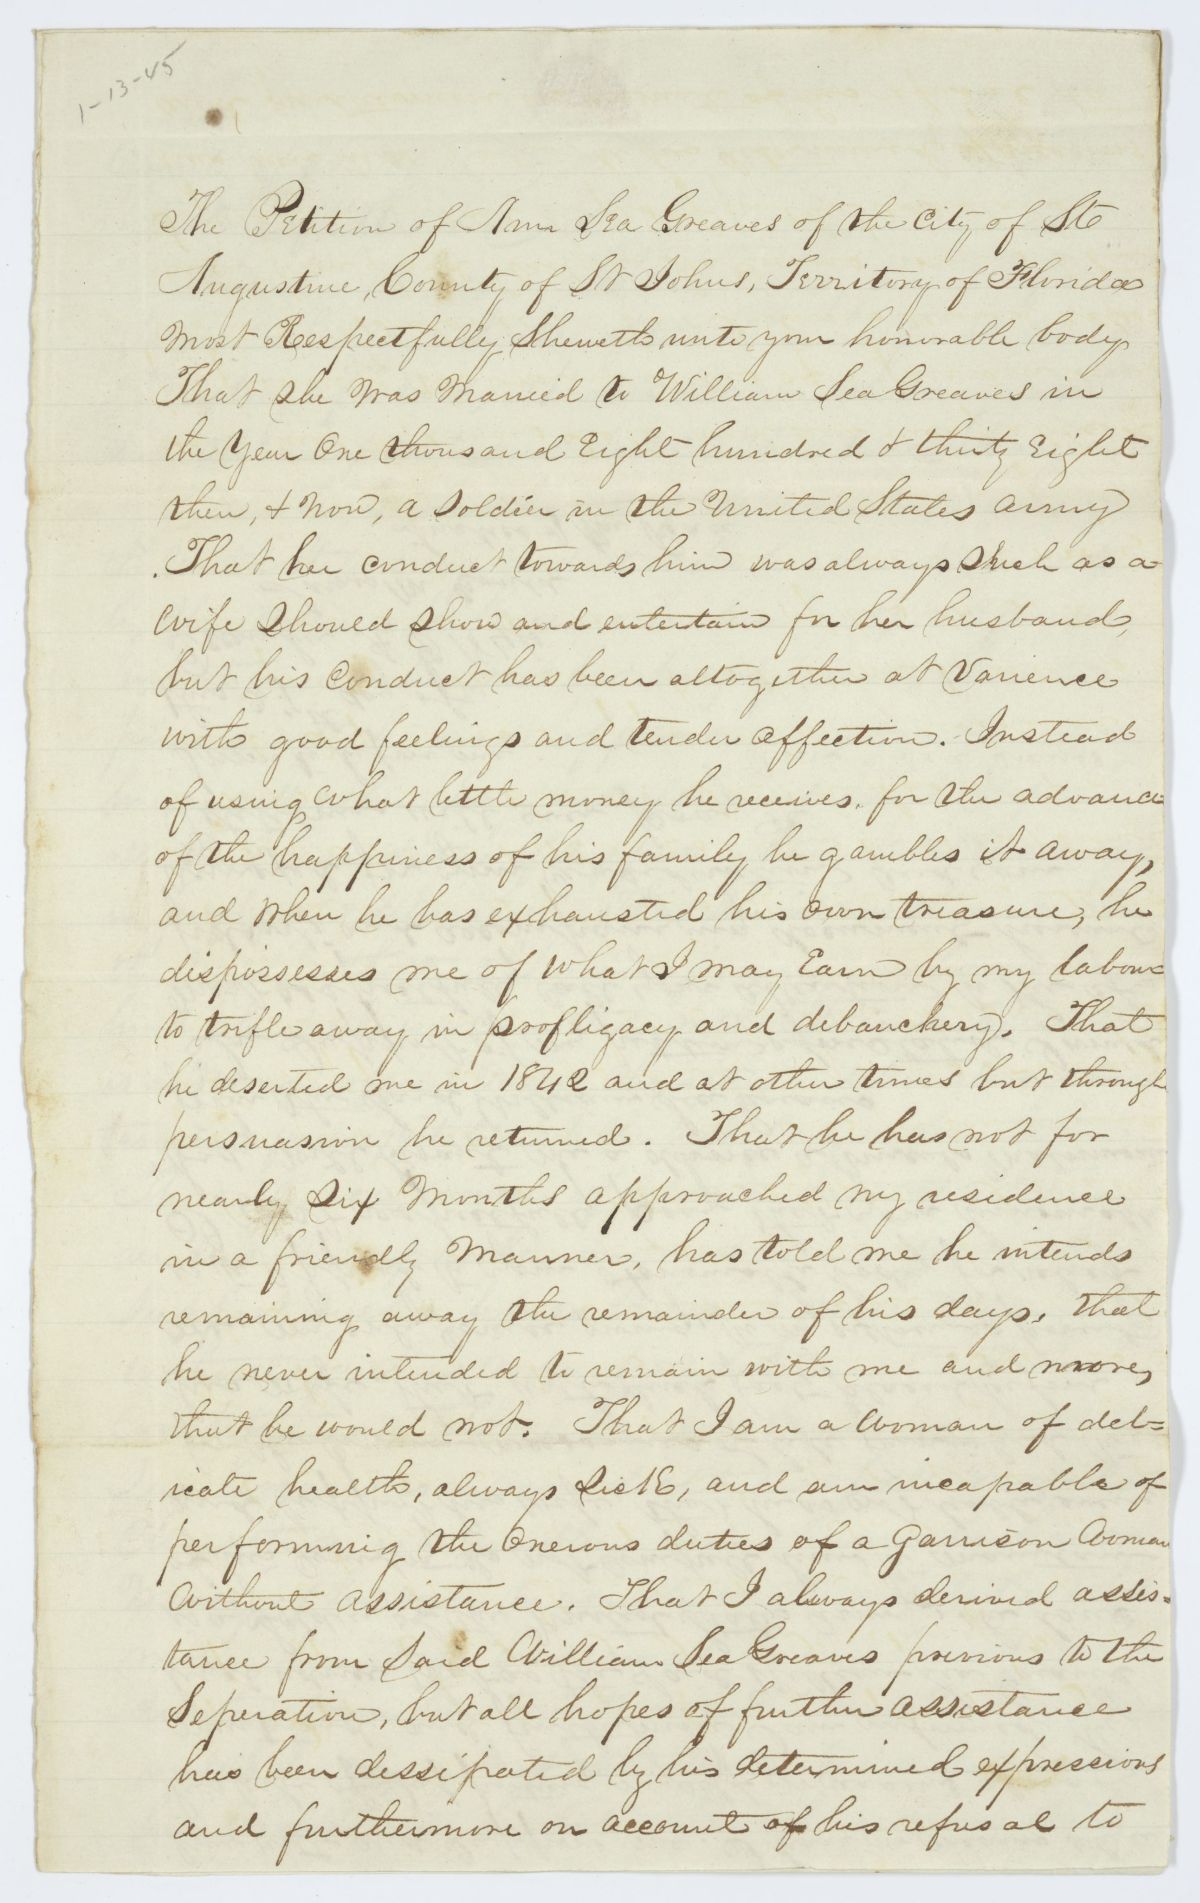 1-13-45
The Petition of Ann Sea Greaves of the City of St
Augustine, County of St Johns, Territory of Florida
Most Respectfully Sheweth unto your honorable body
That she was Married to William Sea Greaves in
the Year One thousand Eight hundred & thirty Eight
then, & now, a Soldier in the United States army
. That her conduct towards him was always such as a
wife should show and entertain for her husband,
but his Conduct has been altogether at Varience
with good feelings and tender affection. Instead
of using what little money he receives. for the advance
of the happiness of his family he gambles it away,
and when he has exhausted his own treasure, he
dispossesses me of what I may Earn by my labour
to trifle away in profligacy and debauchery. That
he deserted me in 1842 and at other times but through
persuasion he returned. That he has not for
nearly Six Months approached my residence
in a friendly Manner, has told me he intends
remaining away the remainder of his days, that
he never intended to remain with me and more,
that he would not. That I am a Woman of del=
icate health, always Sick, and am incapable of
performing the Onerous duties of a Garrison Woman
Without assistance. That I always derived assis=
tance from Said William Sea Greaves previous to the
Seperation, but all hopes of further assistance
has been dessipated by his determined expressions
and furthermore on account of his refusal to